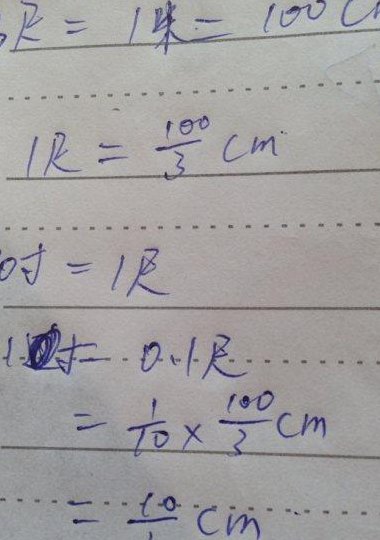 尺 = 1米 = 100 c
1尺 = 100/3 cm
0寸 = 1尺
1寸 = 0.1尺
= 1/10 × 100/3 cm
= 10/ cm